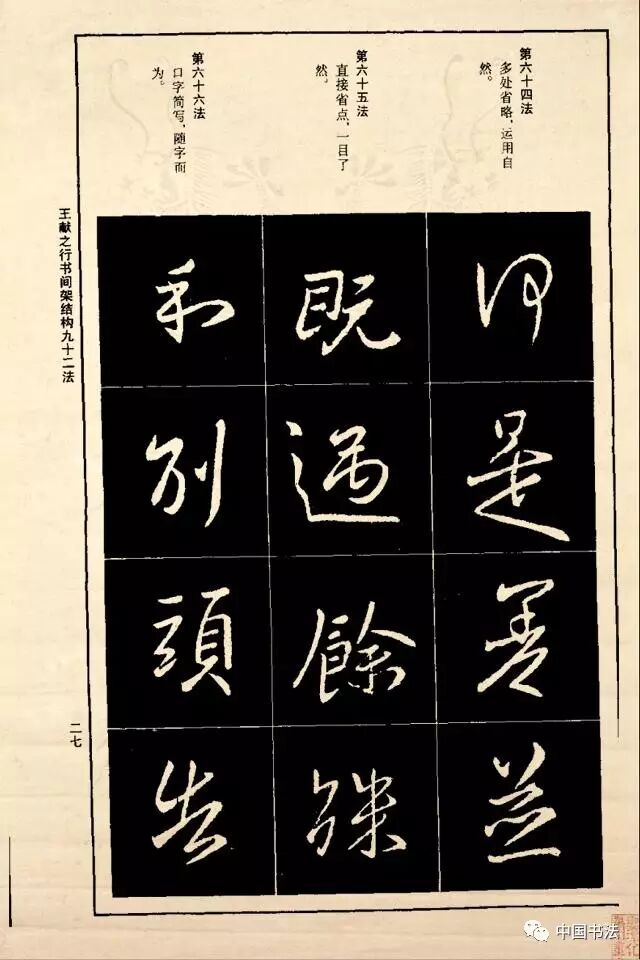 第六十四法
多处省略，运用自
然。
第六十五法
直接省点，一目了
然。
第六十六法
口字简写，随字而
为。
是善並
既餘殊
和别頭告
王献之行书间架结构九十二法
二七
中国书法